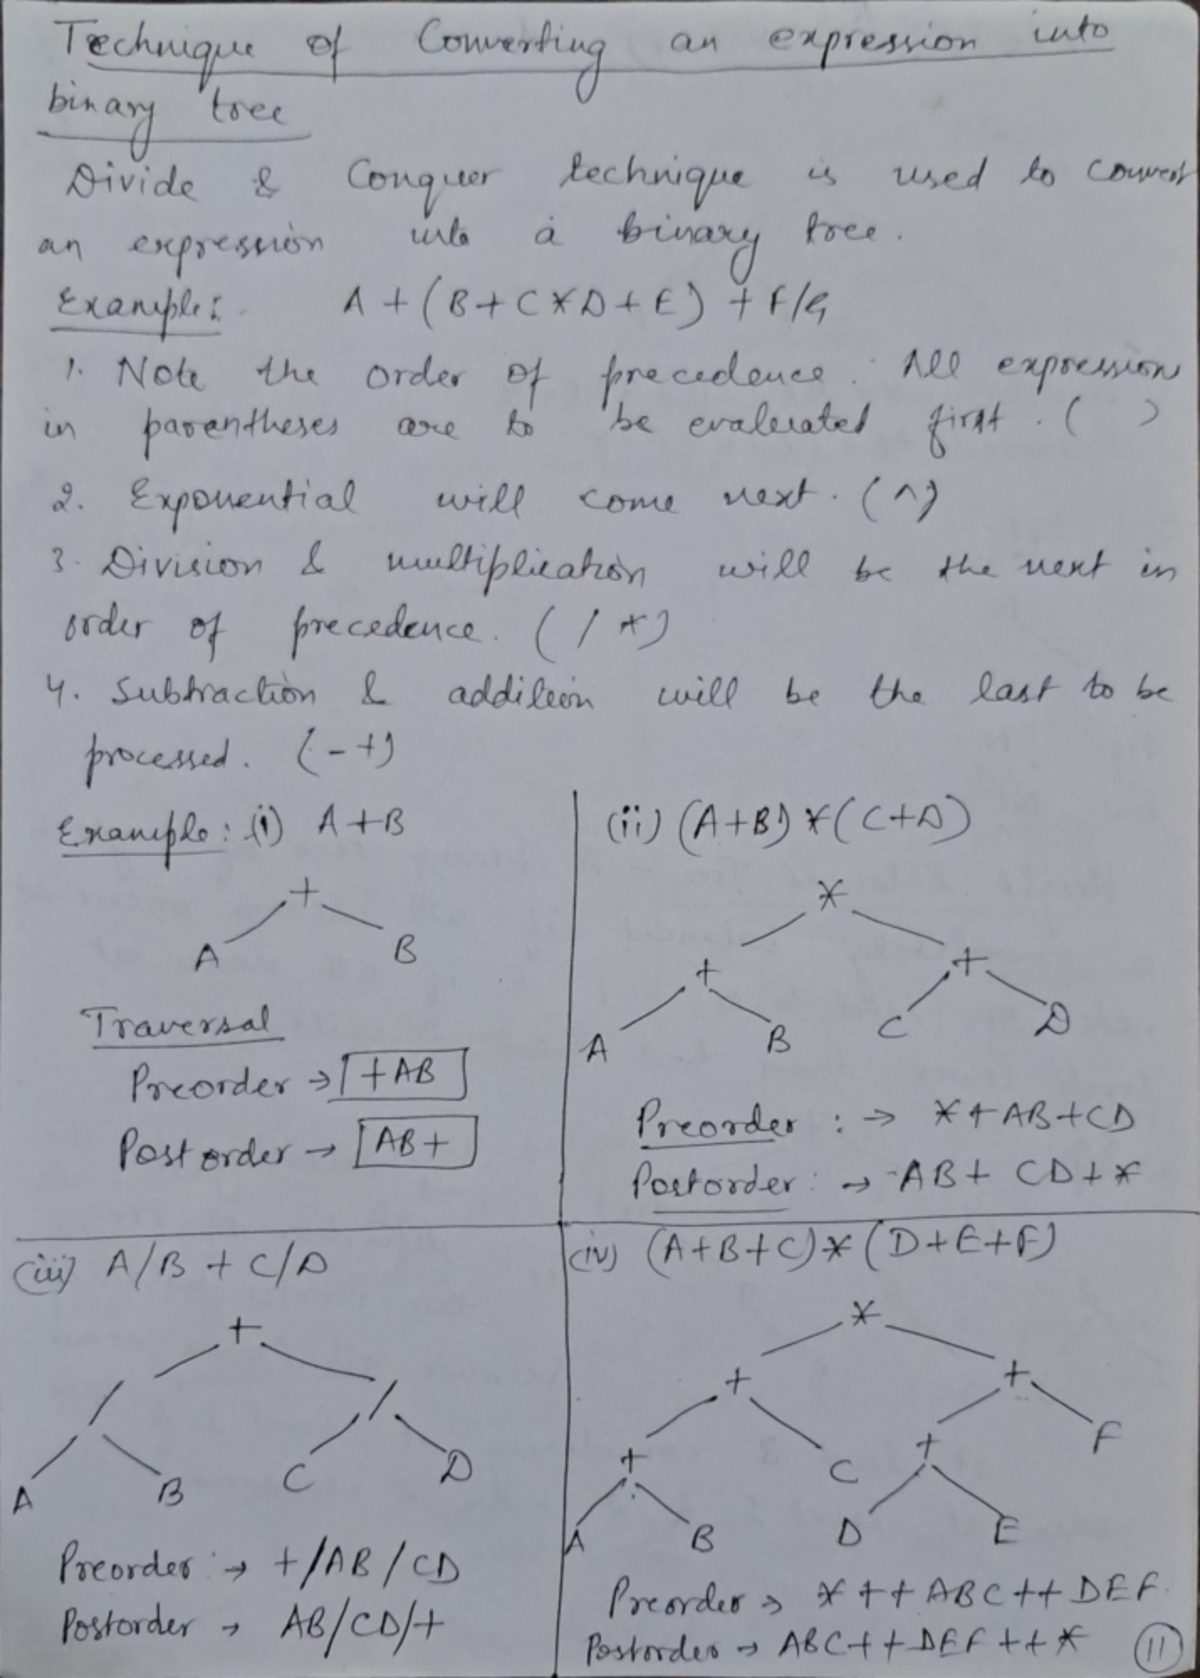 Technique of Converting an expression into
binary tree
Divide & Conquer technique is used to convert
an expression into a binary tree.
Example: A + (B + C * D + E) + F/G
1. Note the order of precedence. All expression
in parentheses are to be evaluated first. ( )
2. Exponential will come next. (^)
3. Division & multiplication will be the next in
order of precedence. ( / *)
4. Subtraction & addition will be the last to be
processed. (- +)
Example: (i) A + B
+
A B
Traversal
Preorder → +AB
Postorder → AB+
(ii) (A+B) * (C+D)
*
+ +
A B C D
Preorder : → *+AB+CD
Postorder : → AB+ CD+*
(iii) A/B + C/D
+
/ /
A B C D
Preorder : → +/AB/CD
Postorder → AB/CD/+
(iv) (A+B+C) * (D+E+F)
*
+ +
+ C + F
A B D E
Preorder → *++ABC++DEF.
Postorder → ABC++DEF++*
11